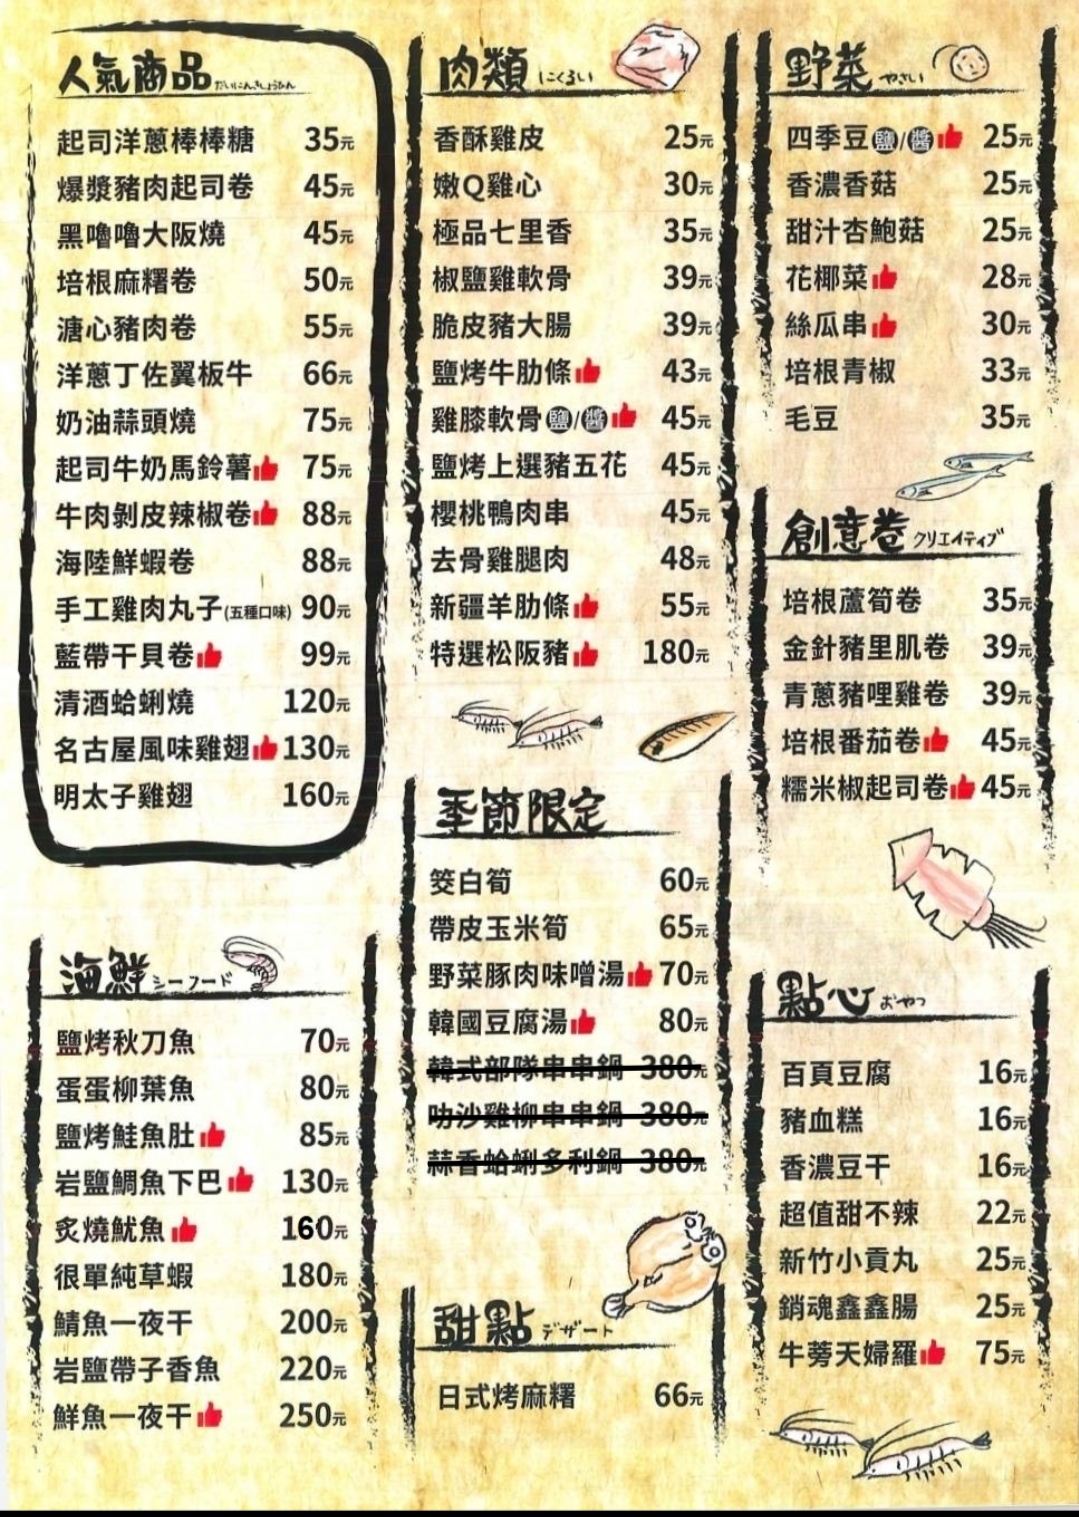 人氣商品 だいにんきしょうひん
起司洋蔥棒棒糖 35元
爆漿豬肉起司卷 45元
黑嚕嚕大阪燒 45元
培根麻糬卷 50元
溏心豬肉卷 55元
洋蔥丁佐翼板牛 66元
奶油蒜頭燒 75元
起司牛奶馬鈴薯 75元
牛肉剝皮辣椒卷 88元
海陸鮮蝦卷 88元
手工雞肉丸子(五種口味) 90元
藍帶干貝卷 99元
清酒蛤蜊燒 120元
名古屋風味雞翅 130元
明太子雞翅 160元
海鮮 シーフード
鹽烤秋刀魚 70元
蛋蛋柳葉魚 80元
鹽烤鮭魚肚 85元
岩鹽鯛魚下巴 130元
炙燒魷魚 160元
很單純草蝦 180元
鯖魚一夜干 200元
岩鹽帶子香魚 220元
鮮魚一夜干 250元
肉類 にくるい
香酥雞皮 25元
嫩Q雞心 30元
極品七里香 35元
椒鹽雞軟骨 39元
脆皮豬大腸 39元
鹽烤牛肋條 43元
雞膝軟骨鹽/醬 45元
鹽烤上選豬五花 45元
櫻桃鴨肉串 45元
去骨雞腿肉 48元
新疆羊肋條 55元
特選松阪豬 180元
季節限定
筊白筍 60元
帶皮玉米筍 65元
野菜豚肉味噌湯 70元
韓國豆腐湯 80元
韓式部隊串串鍋 380元
叻沙雞柳串串鍋 380元
蒜香蛤蜊多利鍋 380元
甜點 デザート
日式烤麻糬 66元
野菜 やさい
四季豆鹽/醬 25元
香濃香菇 25元
甜汁杏鮑菇 25元
花椰菜 28元
絲瓜串 30元
培根青椒 33元
毛豆 35元
創意卷 クリエイティブ
培根蘆筍卷 35元
金針豬里肌卷 39元
青蔥豬哩雞卷 39元
培根番茄卷 45元
糯米椒起司卷 45元
點心 おやつ
百頁豆腐 16元
豬血糕 16元
香濃豆干 16元
超值甜不辣 22元
新竹小貢丸 25元
銷魂鑫鑫腸 25元
牛蒡天婦羅 75元